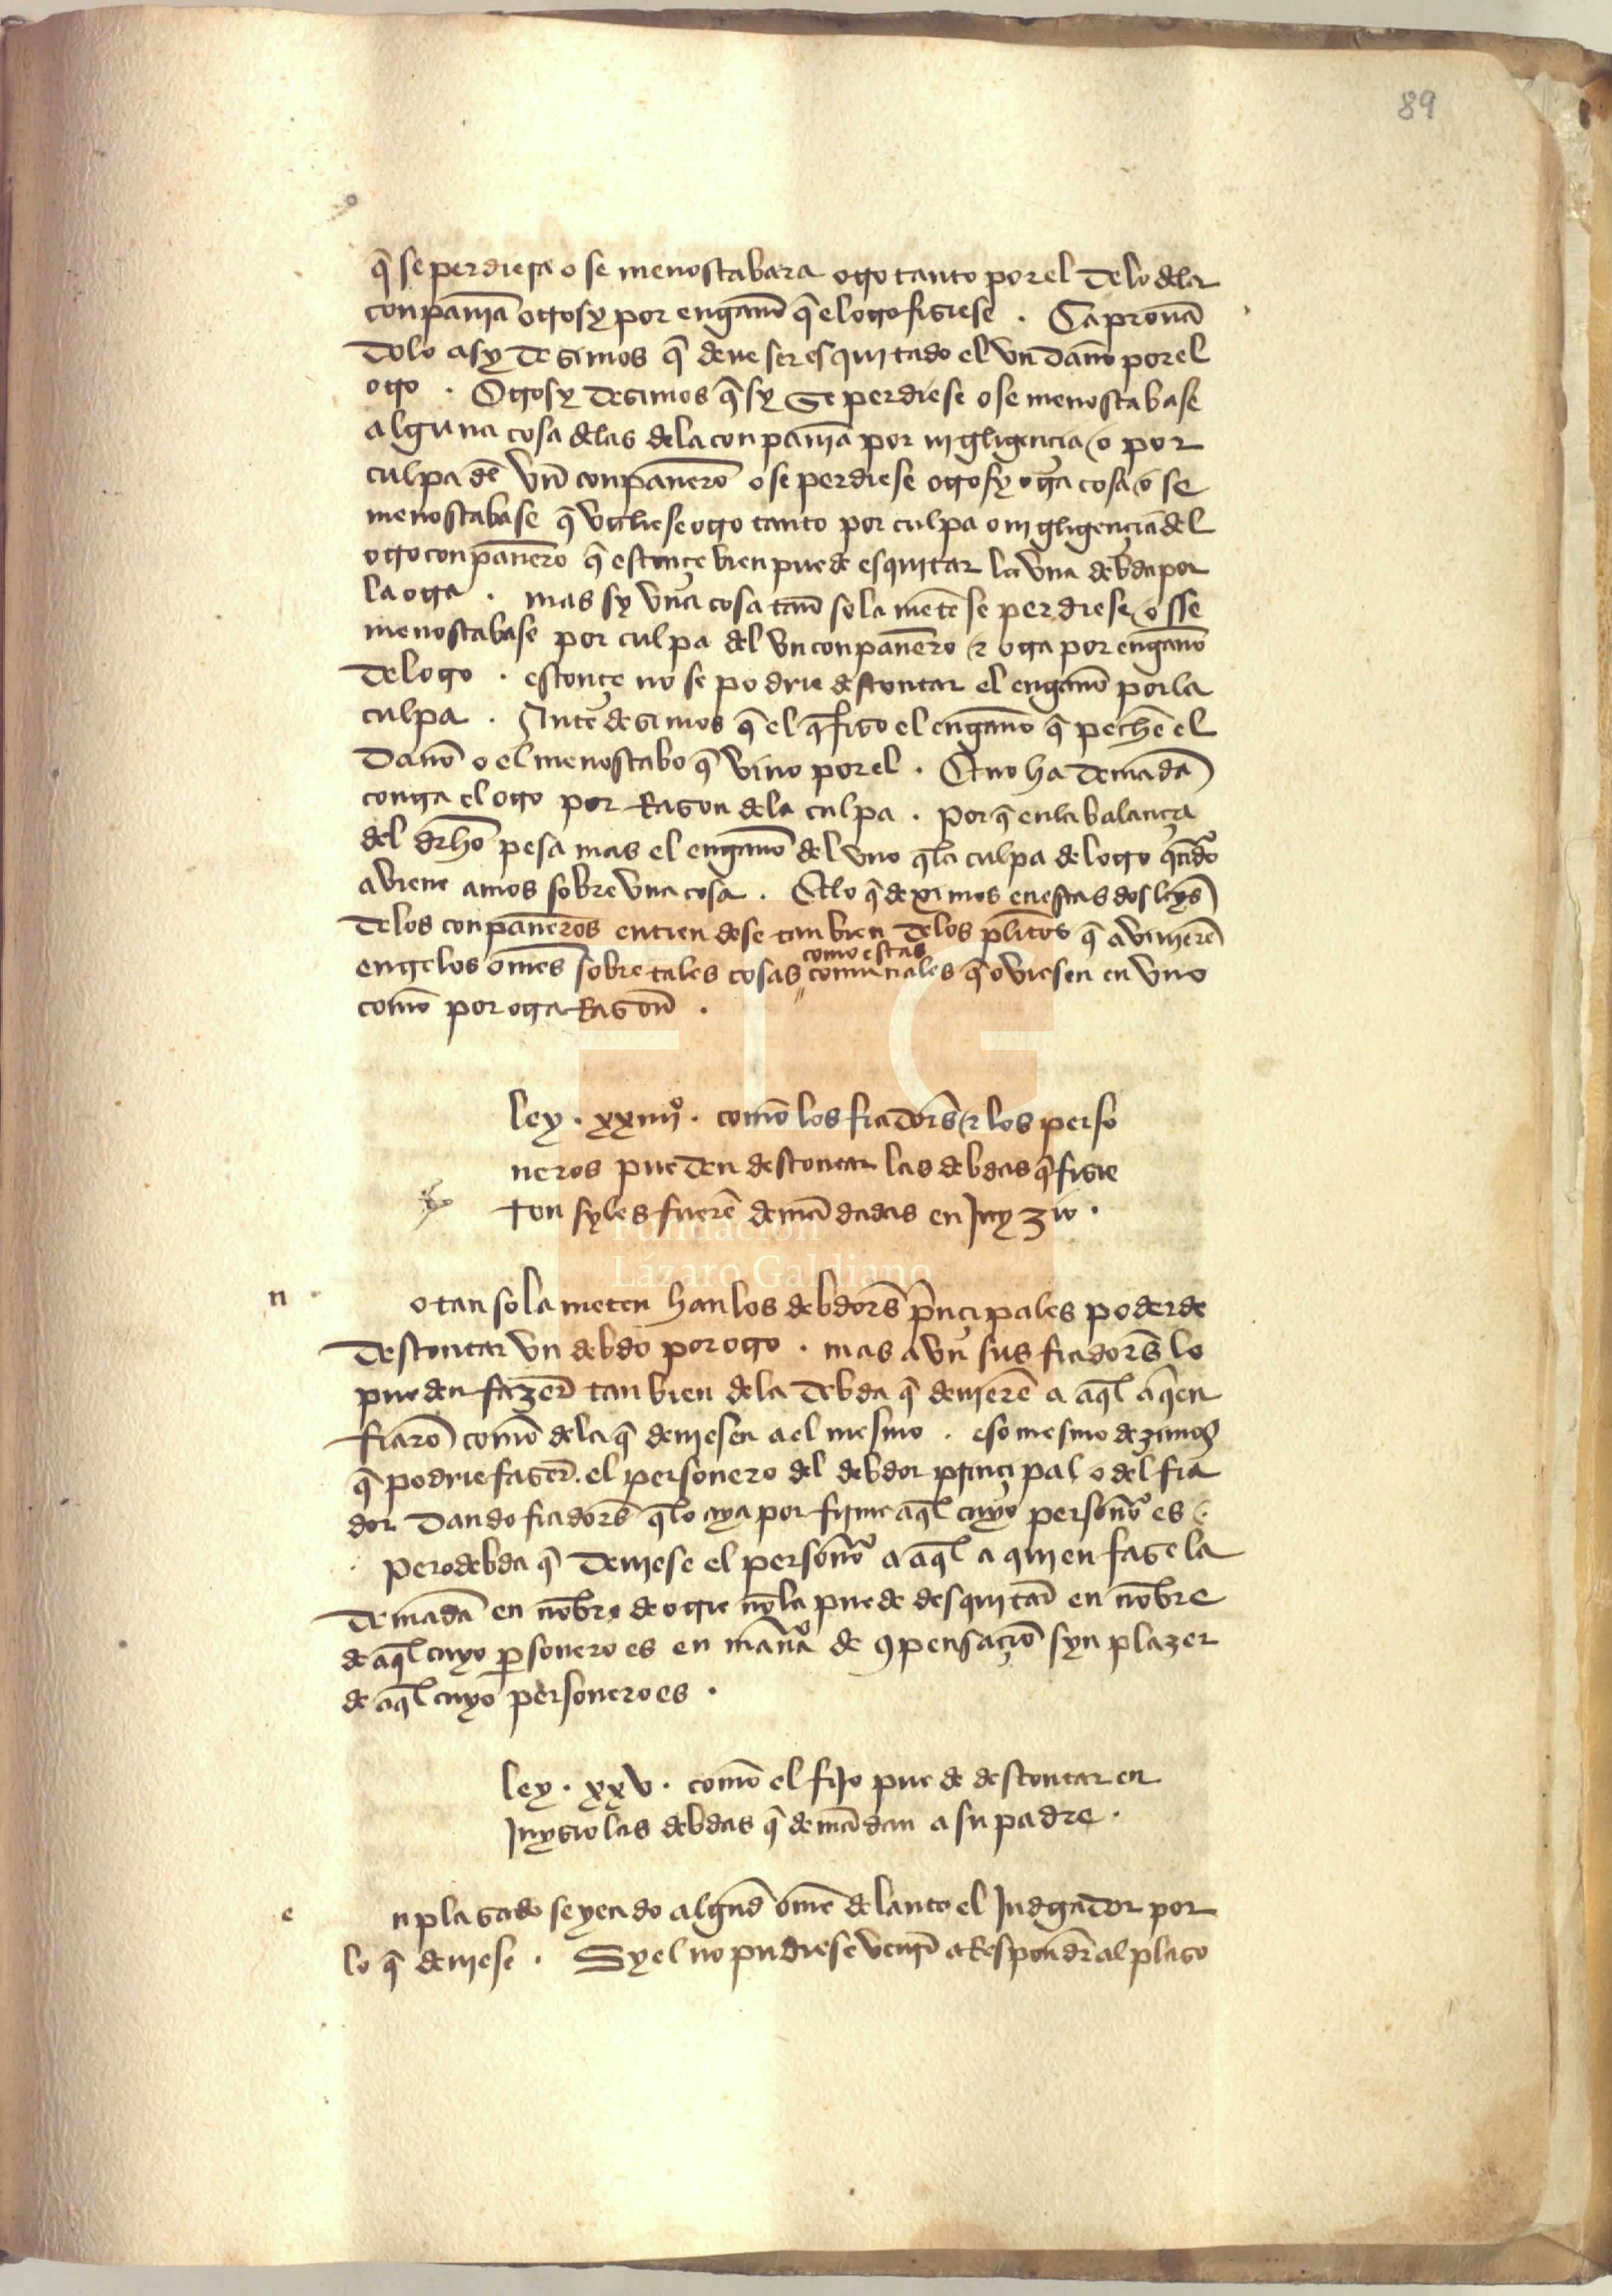 89
q̃ se perdiera o se menoscabara otro tanto por el de lo dela
conpañia otrosy por engaño q̃ el otro fisiese . Ca prouã
dolo asy desimos q̃ deue ser esquitado el vn daño por el
otro . Otrosy desimos q̃ sy se perdiese o se menoscabase
alguna cosa delas dela conpañia por nigligençia o por
culpa de vn conpañero o se perdiese otrosy otra cosa o se
menoscabase q̃ valiese otro tanto por culpa o nigligençia del
otro conpañero q̃ estonçe bien puede esquitar la vna debda por
la otra . mas sy vna cosa tan sola mẽte se perdiese o sse
menoscabase por culpa del vn conpañero & otra por engaño
del otro . estonçe no se podrie descontar el engaño por la
culpa . Ante desimos q̃ el q̃ fiso el engaño q̃ peche el
daño o el menoscabo q̃ vino por el . Et no ha demãda
contra el otro por Rason dela culpa . por q̃ en la balança
del drho pesa mas el engaño del vno q̃ la culpa del otro qñdo
aviene amos sobre vna cosa . Et lo q̃ deximos en estas dos leys
delos conpañeros entiendese tan bien delos plitos q̃ avinierẽ
entre los omes sobre tales cosas comunales q̃ oviesen en vno
como estas
como por otra Rason .
ley . xxiiijº . como los fiadors & los perso
neros pueden descontar las debdas q̃ fisie
ron sy les fuerẽ demãdadas en Juyzio .
n
o tan sola meten han los debdors prĩçipales poder de
descontar vn debdo por otro . mas avn sus fiadors lo
pueden fazer tan bien dela debda q̃ deuierẽ a aql̃ a q̃en
fiarõ como dela q̃ deuiesen a el mesmo . eso mesmo dezimos
q̃ podrie faser . el personero del debdor prinçipal o del fia
dor dando fiadors q̃ lo aya por firme aql̃ cuyo personº es
pero debda q̃ deuiese el personº a aql̃ a quien fase la
demãda en nõbre de otrie nõ la puede desquitar en nõbre
de aql̃ cuyo personero es en manª de conpensaçiõ syn plazer
de aql̃ cuyo personero es .
ley . xxv . como el fijo puede descontar en
Juysio las debdas q̃ demãdan a su padre .
e
nplasado seyendo algund ome delante el Judgador por
lo q̃ deuiese . Sy el no pudiese venir a Responder al plaso
Fundación
Lázaro Galdiano